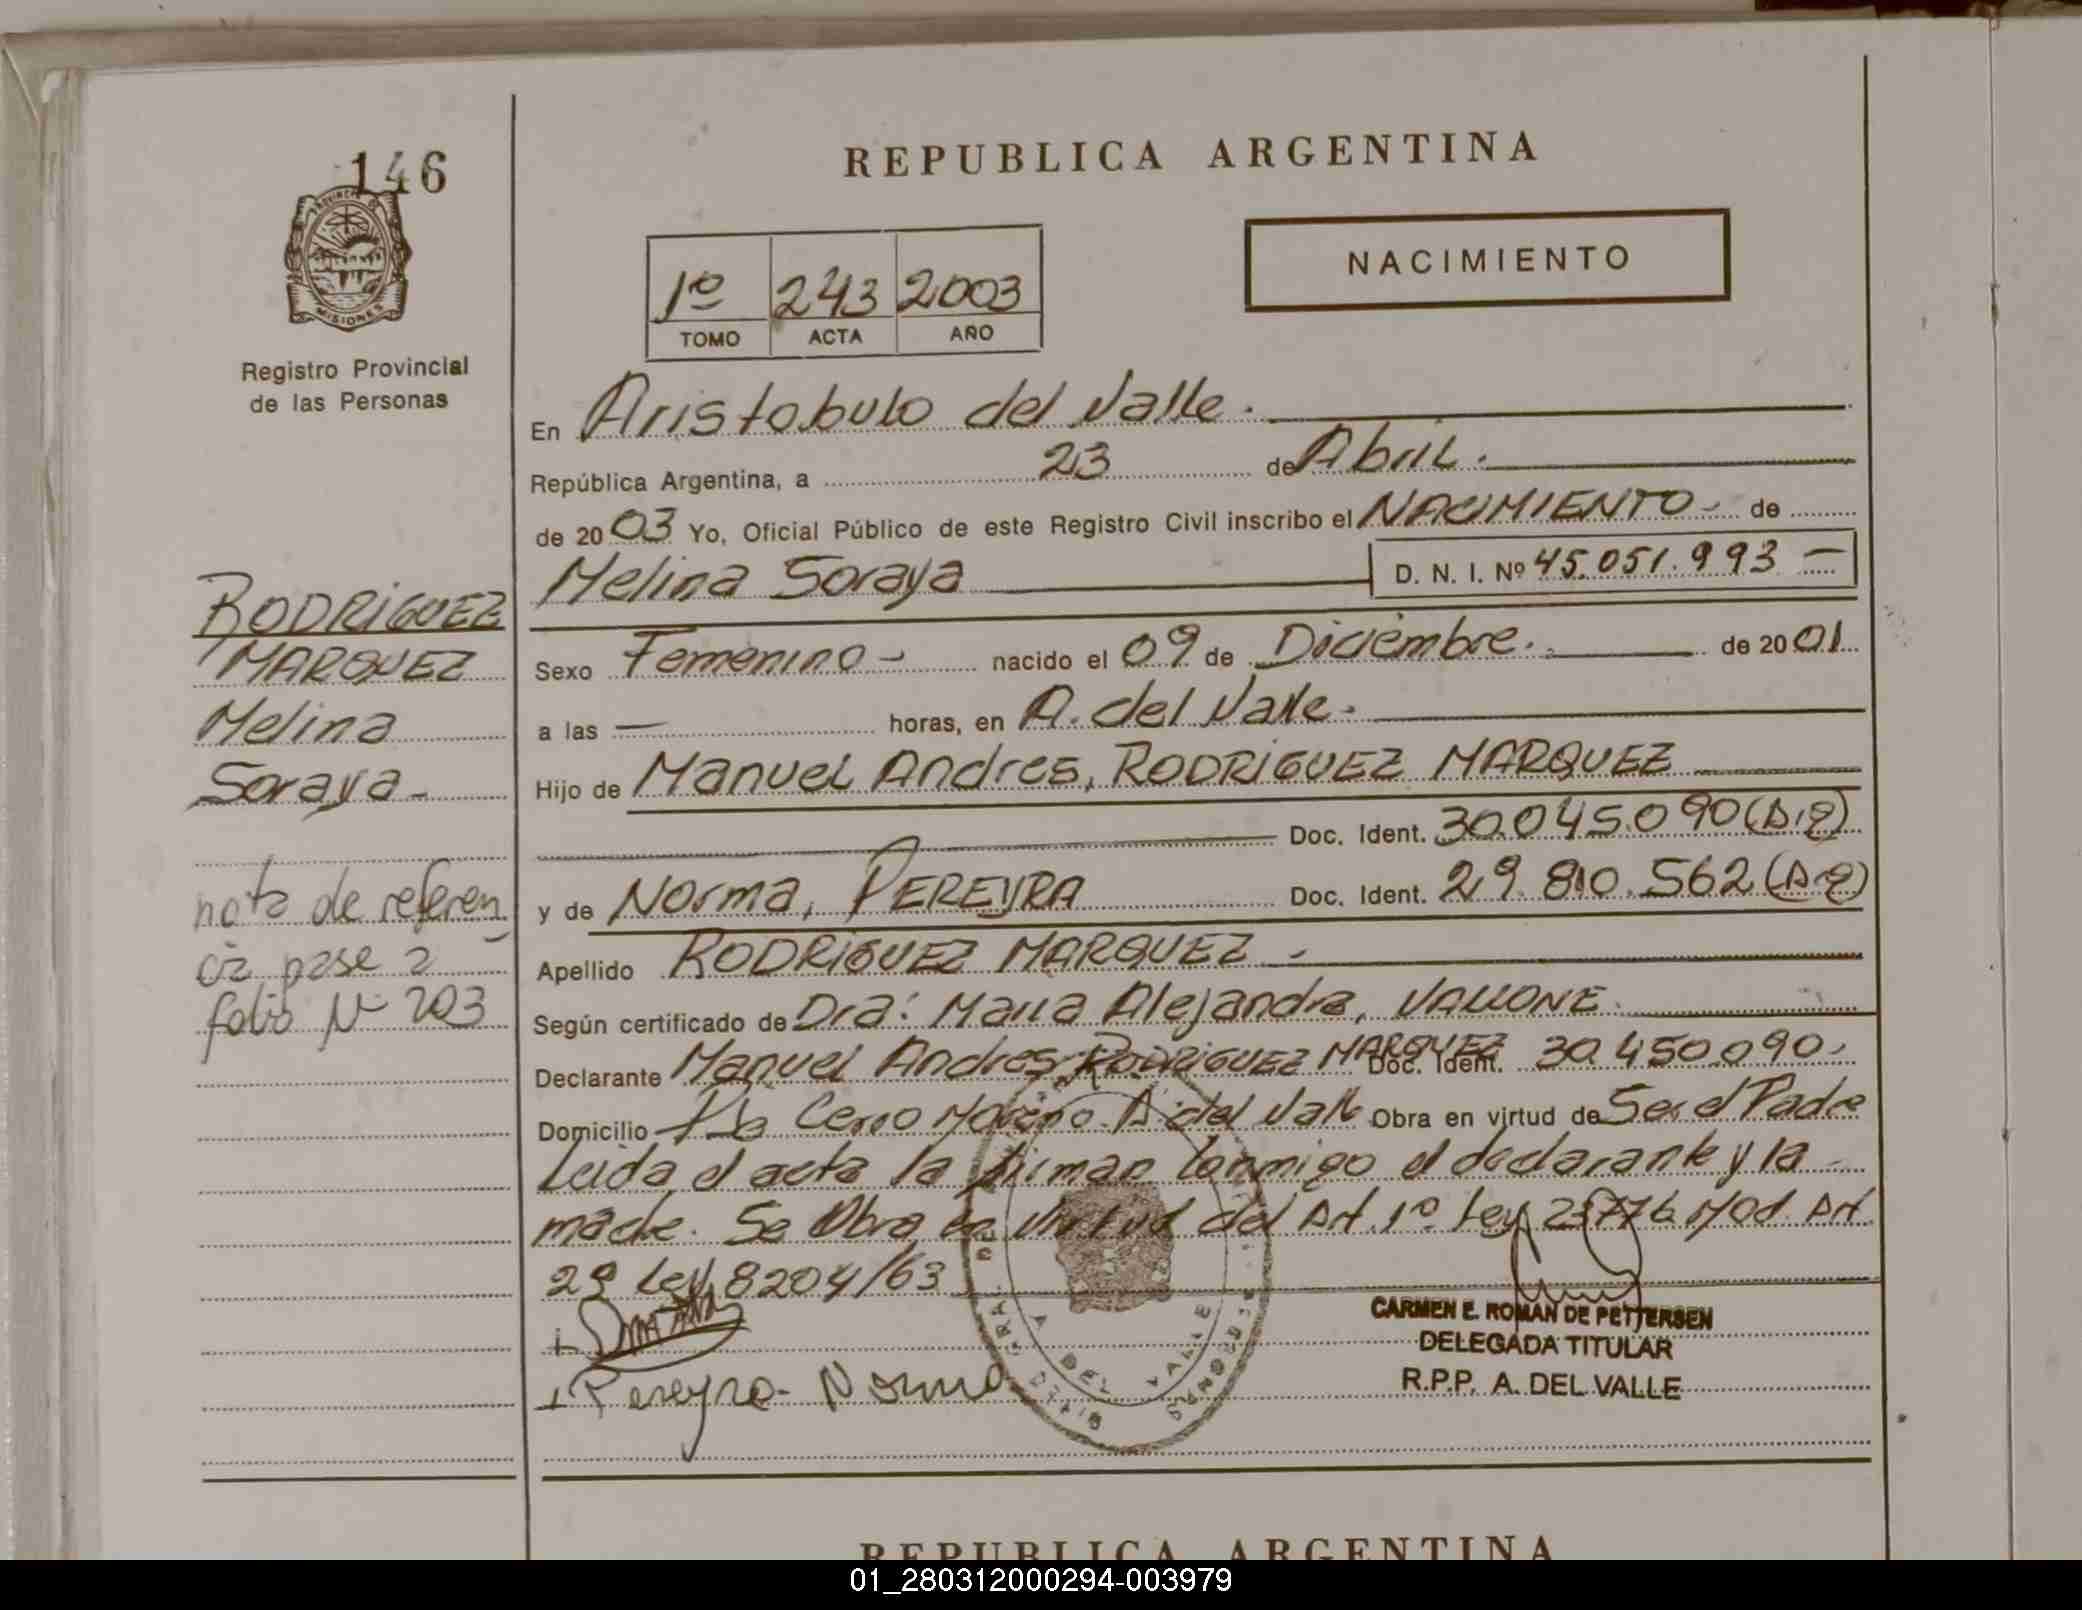 146
PROVINCIA DE
MISIONES
Registro Provincial
de las Personas
REPUBLICA ARGENTINA
1º 243 2003
TOMO ACTA AÑO
NACIMIENTO
En Aristobulo del Valle.
República Argentina, a 23 de Abril.
de 2003 Yo, Oficial Público de este Registro Civil inscribo el NACIMIENTO - de
Melina Soraya D. N. I. Nº 45.051.993 -
Sexo Femenino - nacido el 09 de Diciembre. de 2001
a las — horas, en A. del Valle.
Hijo de Manuel Andres, RODRIGUEZ MARQUEZ
Doc. Ident. 30.045.090 (A.Q)
y de Norma, PEREYRA Doc. Ident. 29.810.562 (A-Q)
Apellido RODRIGUEZ MARQUEZ -
Según certificado de Dra: Maria Alejandra, VALLONE
Declarante Manuel Andres, RODRIGUEZ MARQUEZ Doc. Ident. 30.450.090.
Domicilio Pje Cerro Moreno. A. del Valle Obra en virtud de Ser el Padre
Leida el acta la firman conmigo el declarante y la
madre. Se Obra en virtud del Art. 1º Ley 23776 Mod. Art
29 Ley 8204/63
Pereyra - Norma
CARMEN E. ROMAN DE PETTERSEN
DELEGADA TITULAR
R.P.P. A. DEL VALLE
A. DEL VALLE
RODRIGUEZ
MARQUEZ
Melina
Soraya -
nota de referen
cia pase a
folio Nº 203
REPUBLICA ARGENTINA
01_280312000294-003979